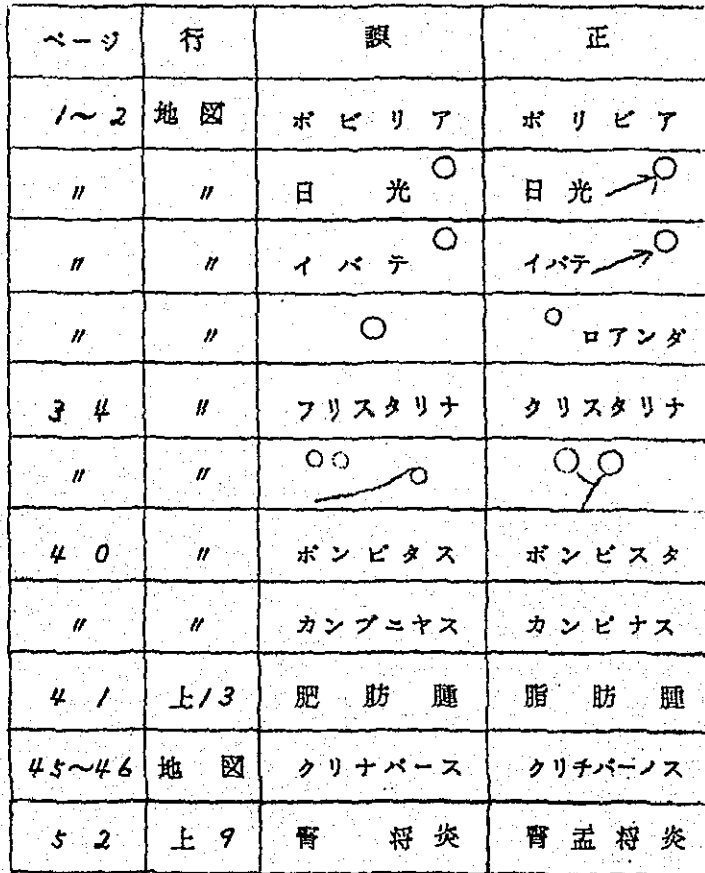 ページ 行 誤 正
1~2 地図 ボビリア ボリビア
〃 〃 日光 ○ 日光 ○
〃 〃 イバテ ○ イバテ ○
〃 〃 ○ ○ロアンダ
34 〃 フリスタリナ クリスタリナ
〃 〃 ○○ ○ ○○
40 〃 ボンビタス ボンビスタ
〃 〃 カンプニヤス カンピナス
41 上13 肥肪腫 脂肪腫
45~46 地図 クリナバース クリチバーノス
52 上9 腎将炎 腎盂将炎